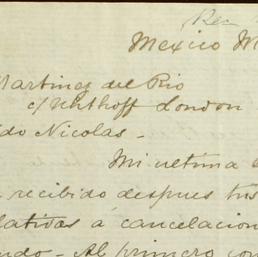 Rec
Mexico M
Martinez del Rio
c/ Uhthoff London
do Nicolas -
Mi ultima
recibido despues tus
lativas á cancelacion
ndo - Al primero con